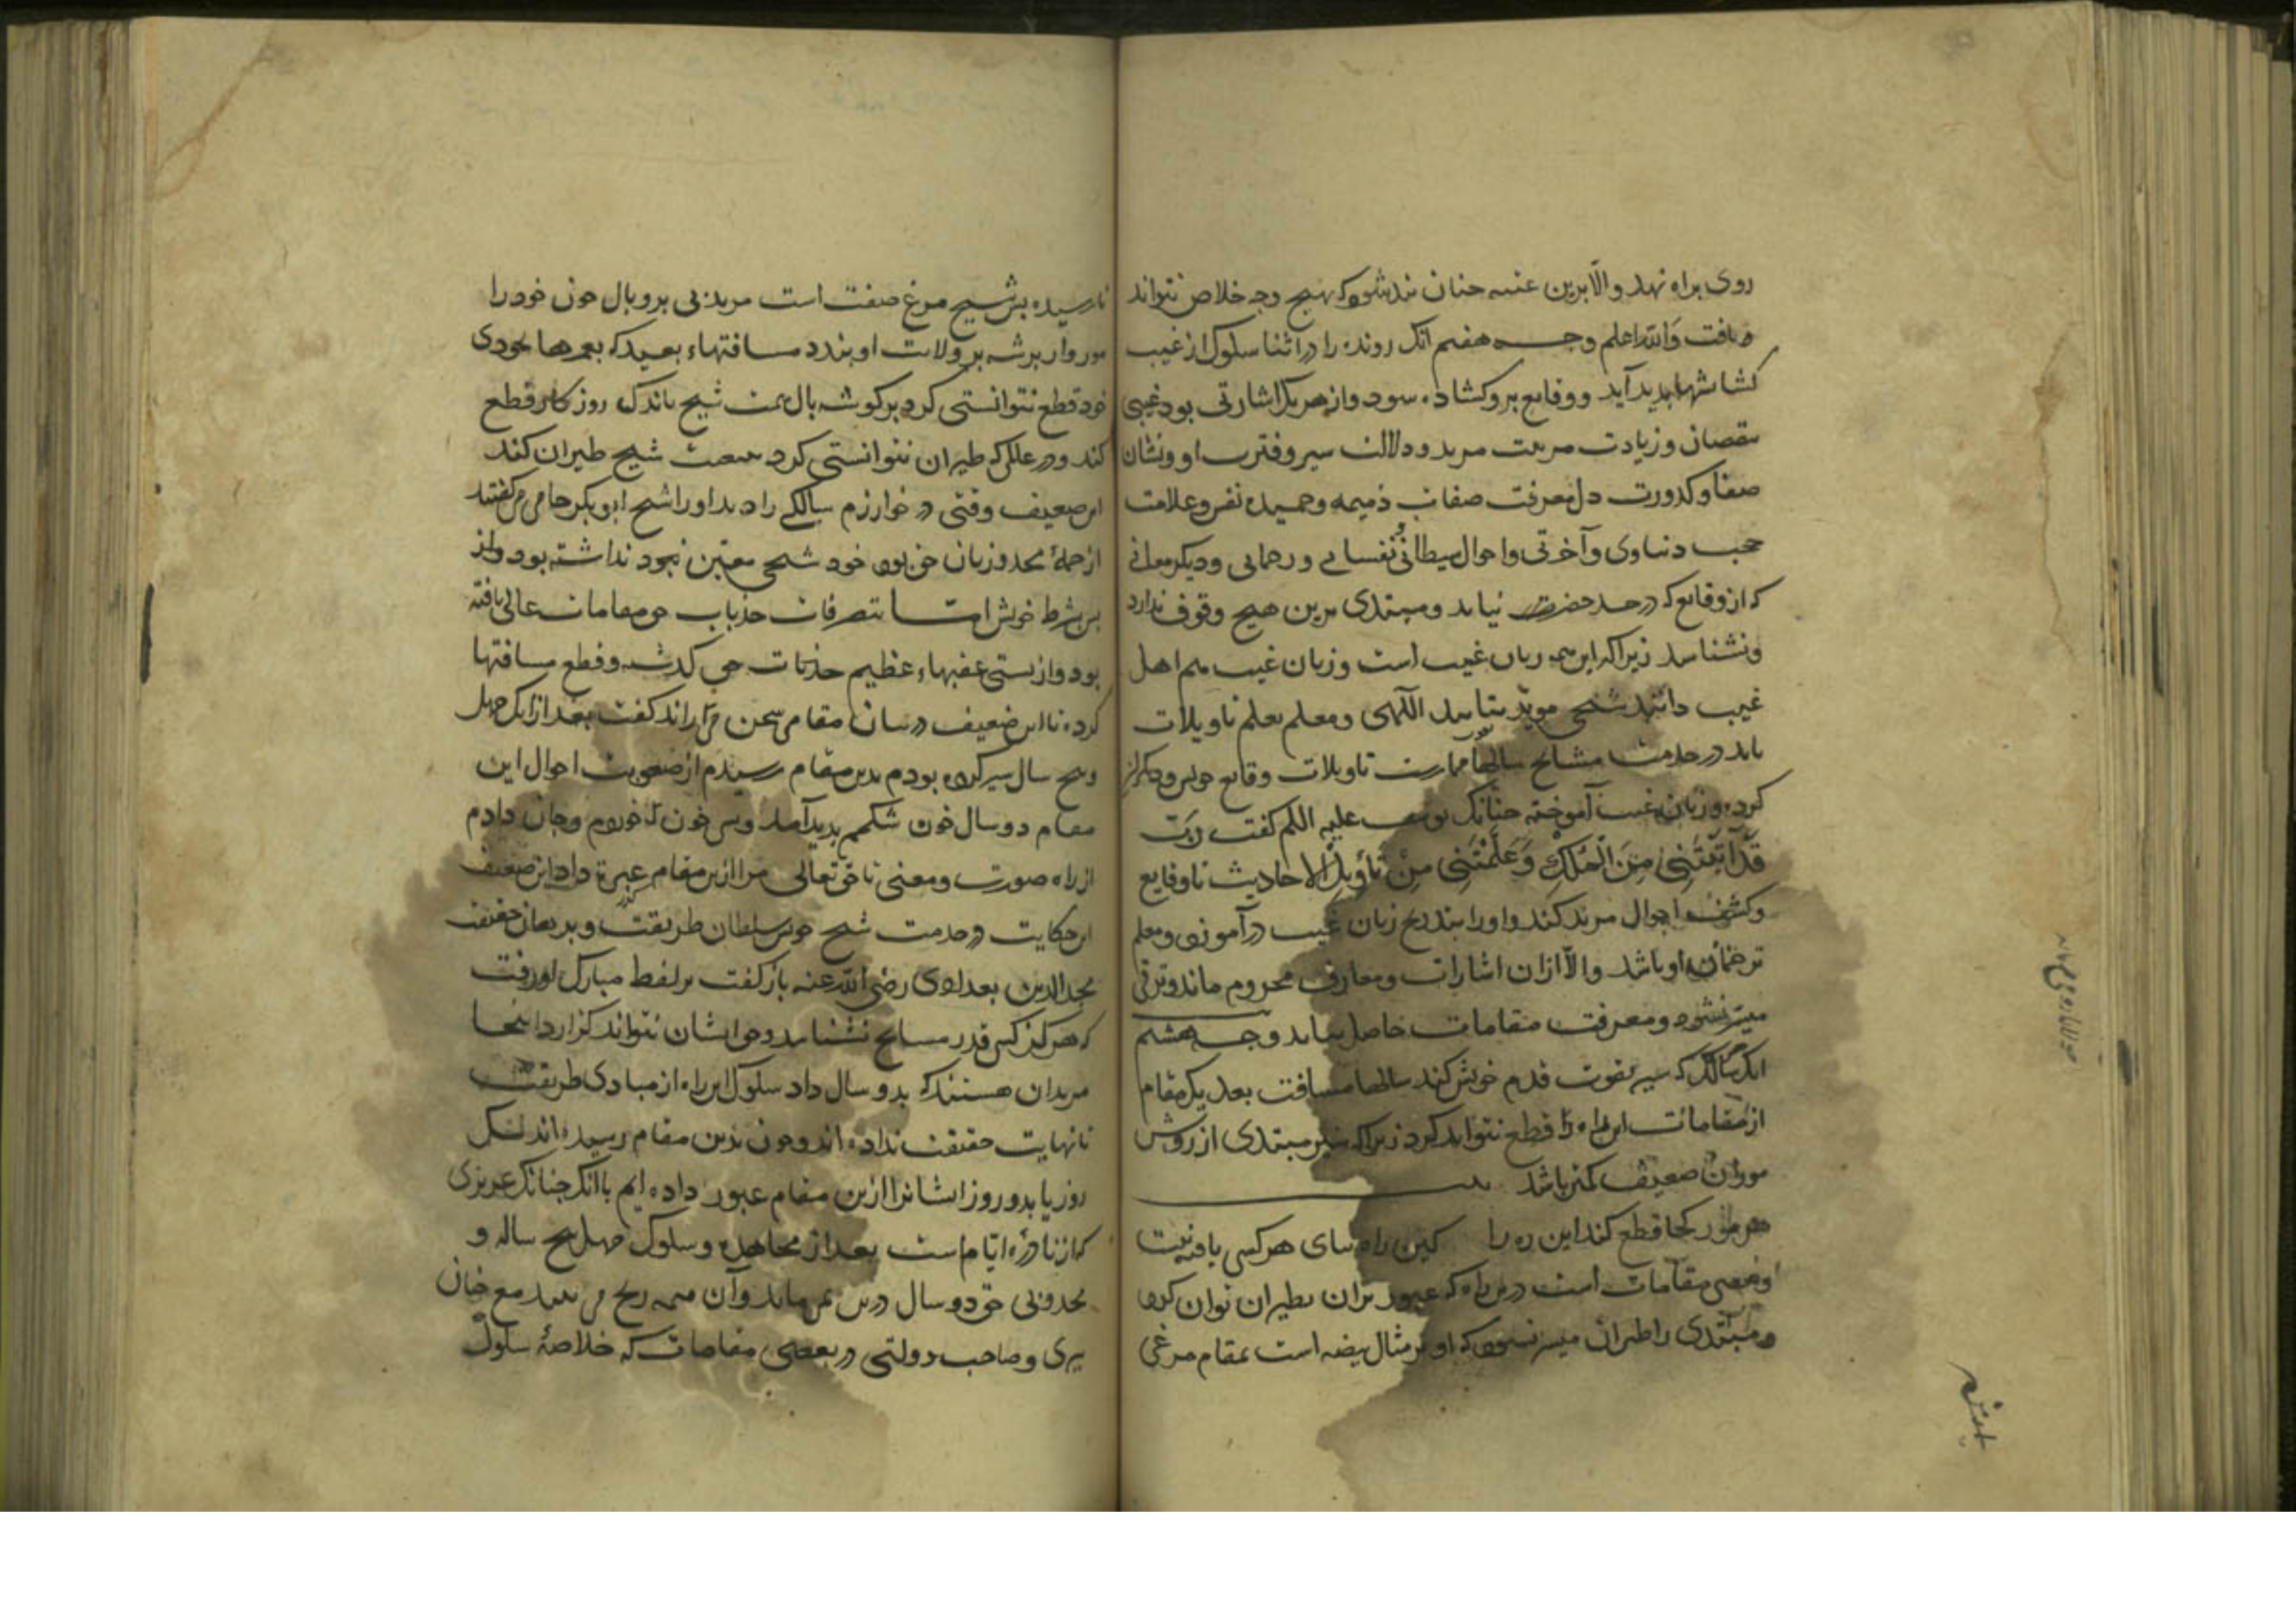 روی براه نهد والّا برین عتبه چنان بند شود که بهیچ وجه خلاص نتواند
یافت وَاللّه اعلم وجه هفتم آنک رونده را در اثنا سلوک از غیب
کشایشها بدید آید و وقایع برو کشاده شود و از هر یک اشارتی بود غیبی
بنقصان و زیادت مرتبت مرید و دلالت سیر و فترت او و نشان
صفا و کدورت دل و معرفت صفات ذمیمه و حمیده نفس و علامت
حجب دنیاوی و آخرتی و احوال شیطانی و نفسانی و رحمانی و دیگر معانی
که از وقایع که در حد حصر نیاید و مبتدی برین هیچ وقوف ندارد
و نشناسد زیرا که این همه زبان غیب است و زبان غیب هم اهل
غیب دانند شیخی موید بتایید الهی و معلم بعلم تاویلات
باید در خدمت مشایخ سالها ممارست تاویلات وقایع خویش و دیگران
کرده و زبان غیب آموخته چنانک یوسف علیه السلم گفت رَبّ
قَدْ آتَيْتَنِي مِنَ الْمُلْكِ وَعَلَّمْتَنِي مِنْ تَأْوِيلِ الاحاديث تا وقایع
و کشف احوال مرید کند و او را بتدریج زبان غیب درآموزد و معلم
ترجمان او باشد والّا ازان اشارات و معارف محروم ماند و ترقی
میسّر نشود و معرفت مقامات حاصل نیاید وجه هشتم
آنک سالک که سیر بقوت قدم خویش کند سالها مسافت بعد یک مقام
از مقامات این راه را قطع نتواند کرد زیرا که سیر مبتدی از روش
موران ضعیف کمتر باشد
هر مور کجا قطع کند این ره را کین راه بپای هر کسی بافته نیست
و بعضی مقامات است درین راه که عبور بران بطیران توان کرد
و مبتدی را طیران میسر نشود که او بر مثال بیضه است بمقام مرغی
نارسیده پس شیخ مرغ صفت است مرید بی پر و بال چون خود را
مور وار بر شهپر ولایت او بندد مسافتهاء بعید که بعمرها بخودی
خود قطع نتوانستی کرد بر گوشه بال همت شیخ باندک روزگار قطع
کند و در عالمی که طیران نتوانستی کرد بتبعیت شیخ طیران کند
این ضعیف وقتی در خوارزم سالکی را دید او را شیخ ابوبکر جامی می گفتند
از جمله مجذوبان حق بود خود شیخی معین نبود نداشته بود و از
پس شرط خویش اما بتصرفات جذبات حق مقامات عالی یافته
بود و از بستی عقبهاء عظیم جذبات حق گذشته و قطع مسافتها
کرده با این ضعیف در بیان مقامی سخن می راند گفت بعد از آنک چهل
و پنج سال سیر کرده بودم بدین مقام رسیدم از صعوبت احوال این
مقام دو سال خون شکمم بدید آمد و بس خون که خوردم و جان دادم
از راه صورت و معنی تا حق تعالی مرا ازین مقام عبره داد این ضعیف
این حکایت در خدمت شیخ خویش سلطان طریقت و برهان حقیقت
مجد الدین بغدادی رضی اللّه عنه باز گفت بر لفظ مبارک او رفت
که هرگز کس قدر مشایخ نشناسد و حق ایشان نتواند گزارد اینجا
مریدان هستند که بدو سال داد سلوک این راه از مبادی طریقت
تا نهایت حقیقت نداده اند و چون بدین مقام رسیده اند بیک
روز یا بدو روز ایشانرا ازین مقام عبور داده ایم با آنک چنانک عزیزی
که از نادره ایام است بعد از مجاهده و سلوک چهل پنج ساله و
مجذوبی حق دو سال درین می ماند و آن همه رنج می بیند مع خان
پیری و صاحب دولتی در بعضی مقامات که خلاصهٔ سلوک